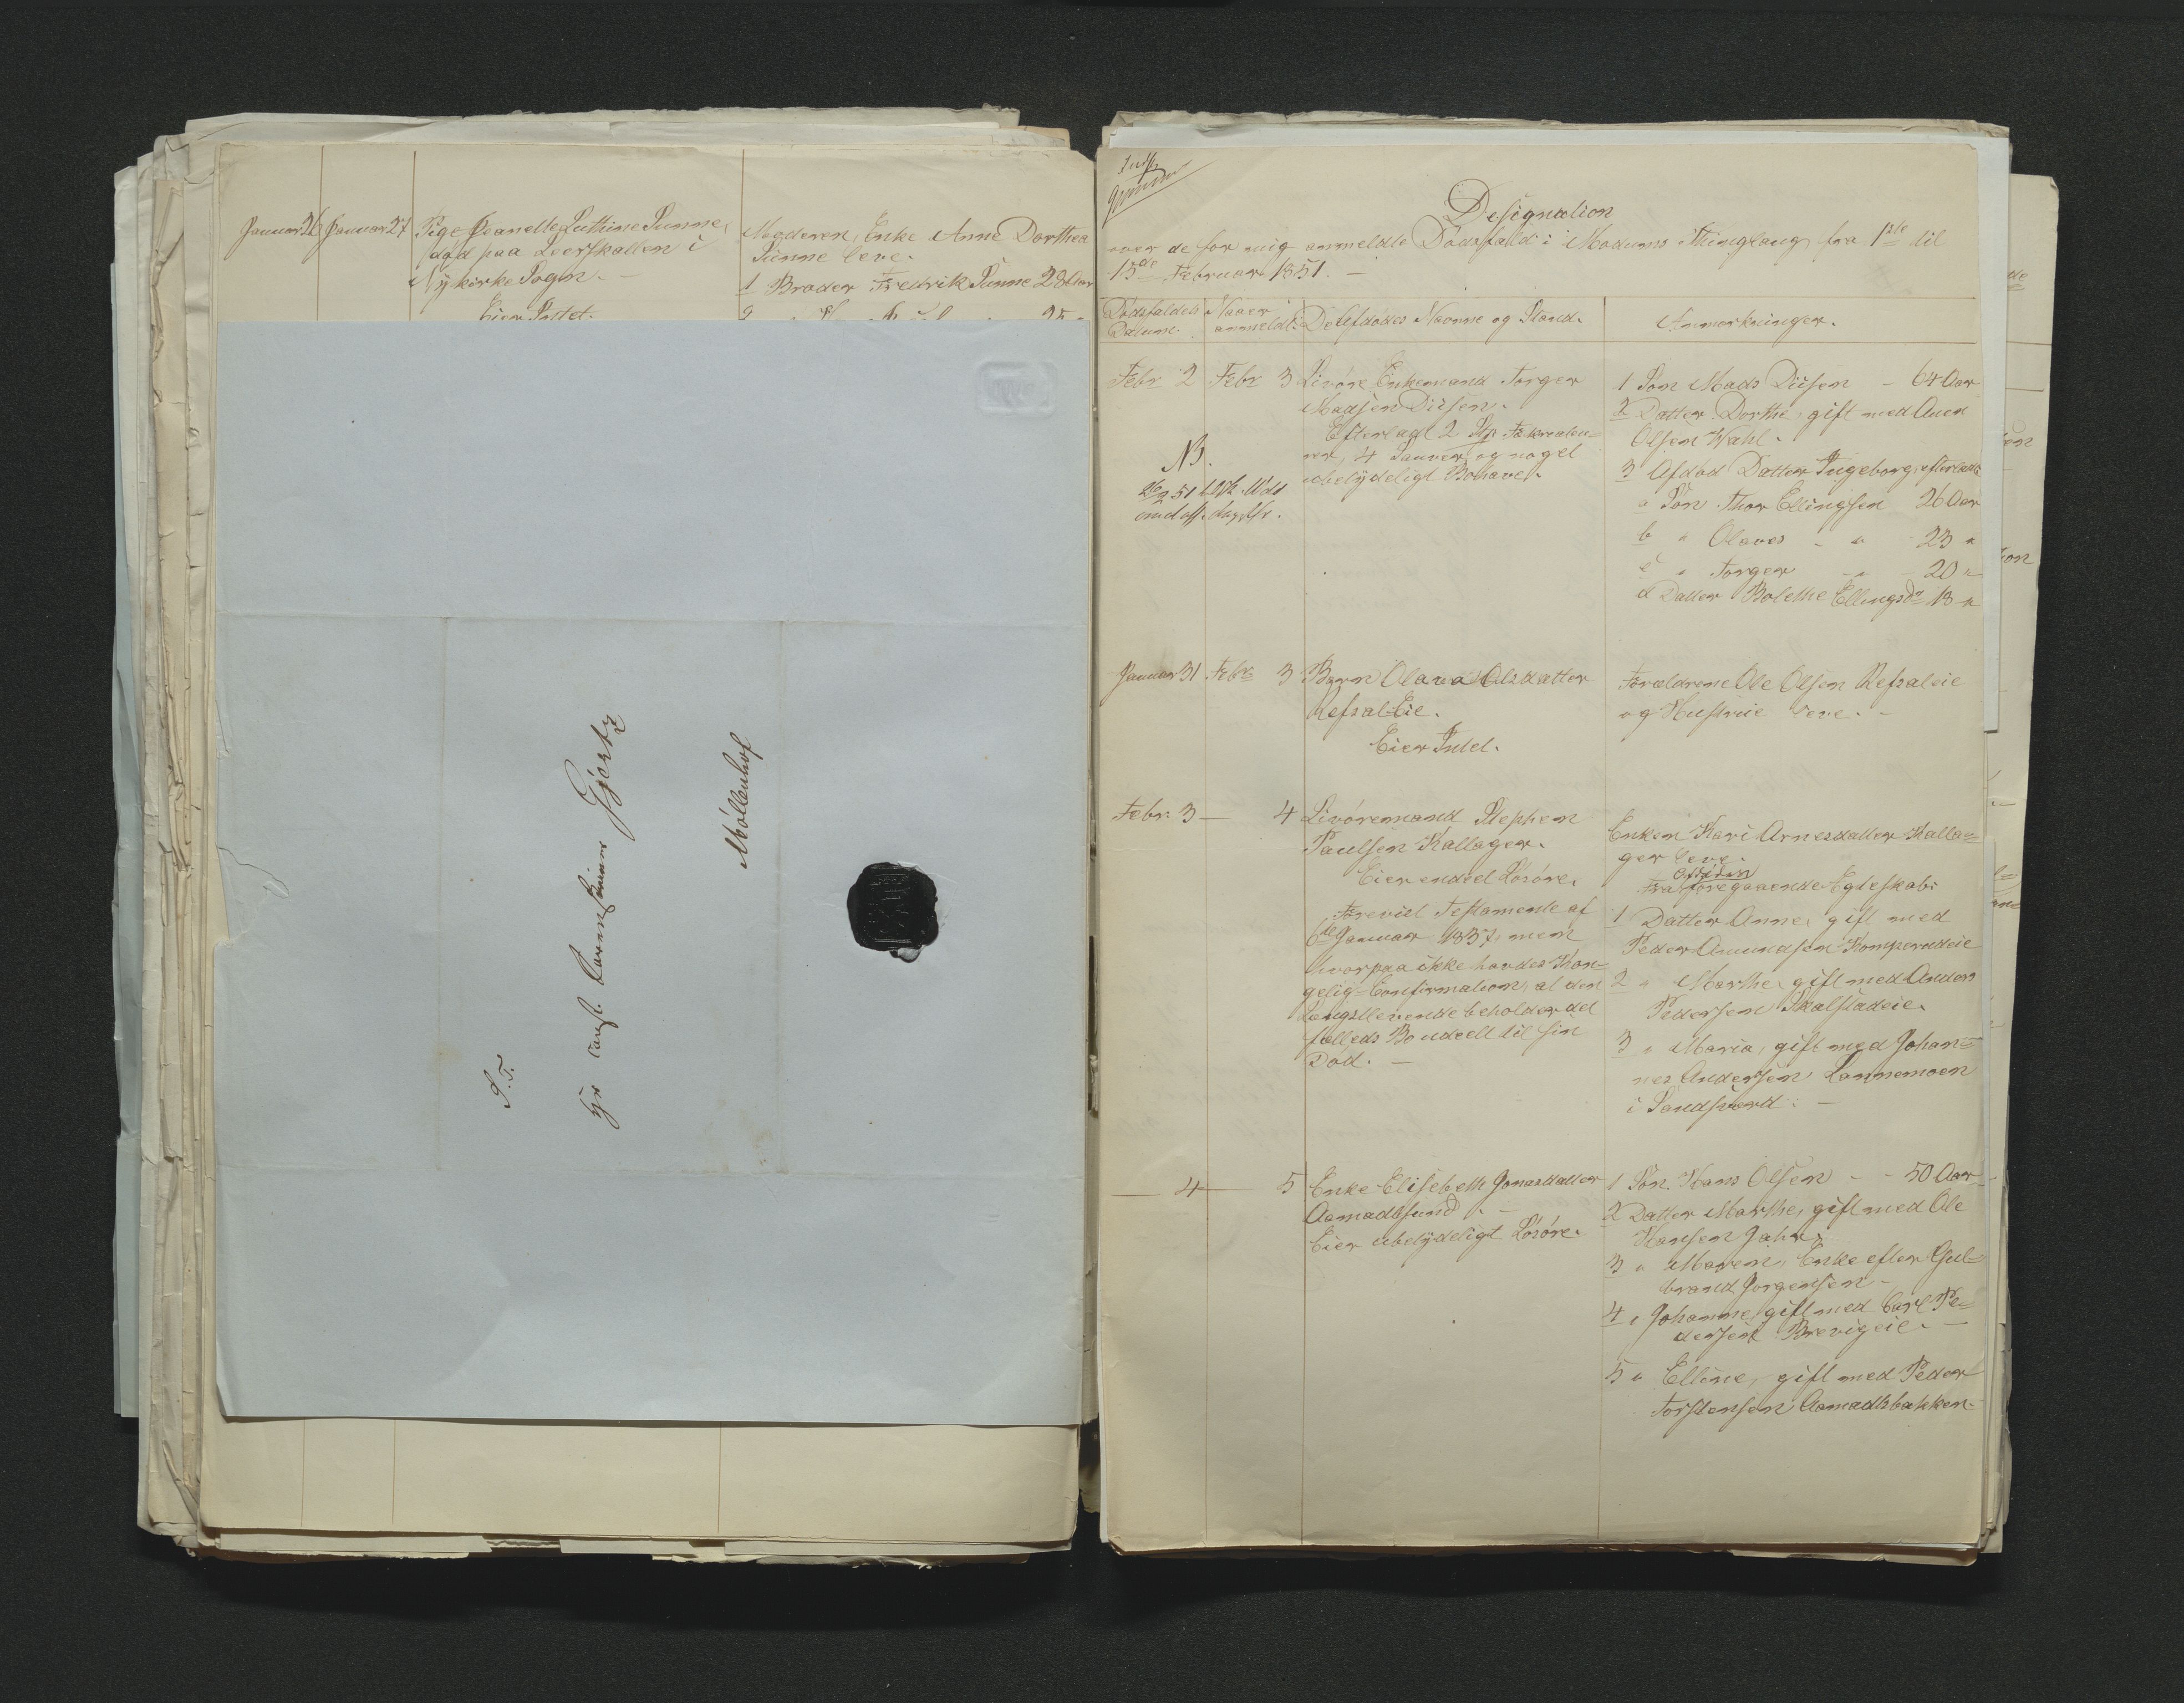 Januar 26 Januar 27 Pige Jeanette Puthine Sunne,
død paa Sverskallen i
Nykirke Sogn. -
Eier Intet.
Moderen, Enke Anne Dorthea
Sunne leve.
1 Broder Fredrik Sunne 28 Aar
S. T.
Hr const. Sorenskriver Gjertz
Möllenhof
Designation
over de for mig anmeldte Dödsfald i Modums Thinglaug fra 1ste til
15de Februar 1851. -
Dödsfaldets Datum.
Naar anmeldt.
De Afdödes Navne og Stand.
Anmærkninger.
Febr 2 Febr 3 Livöre Enkemand Torger
Madsen Diisen.
Efterlagt 2 Stp Fækreatu=
rer, 4 Sauer og noget
ubetydeligt Bohave.
NB.
1 Søn Mads Diisen - 64 Aar
2 Datter Dorthe, gift med Aven
Olsen Wahl.
3 Afdød Datter Ingeborg, efterladt
a Søn Thor Ellingsen 26 Aar
b " Olaves - " 23 "
c " Torger - " 20 "
d Datter Bolethe Ellingsdr 13 "
Januar 31 Febr 3 Barn Olava Olsdatter
Refsal-Eie.
Eier Intet.
Forældrene Ole Olsen Refsaleie
og Hustrue leve. -
Febr. 3 - 4 Livöremand Stephen
Paulsen Kallager.
Eier endeel Lösöre.
Forevist Testamente af
6te Januar 1837, men
hvorpaa ikke havdes Kon=
gelig Confirmation, at den
Længstlevende beholder det
fælleds Bo udeelt til sin
Død. -
Enken Kari Arnesdatter Kalla=
ger leve.
Fra foregaaende Egteskab:
1 Datter Anne, gift med
Peder Amundsen Komperudeie
2 " Marthe, gift med Anders
Pedersen Skalstadeie.
3 " Maria, gift med Johan=
nes Andersen Lannemoen
i Sandsværd. -
- 4 - 5 Enke Elisebeth Jonasdatter
Aamodtsund. -
Eier ubetydeligt Lösöre.
1 Søn. Hans Olsen - - 50 Aar
2 Datter Marthe, gift med Ole
Hansen Jahr.
3 " Maren, Enke efter Gul=
brand Jørgensen -
4 " Johanne, gift med Carl Pe=
dersen Brevigeie. -
5 " Elline, gift med Peder
Torstensen Aamodtsbakken -